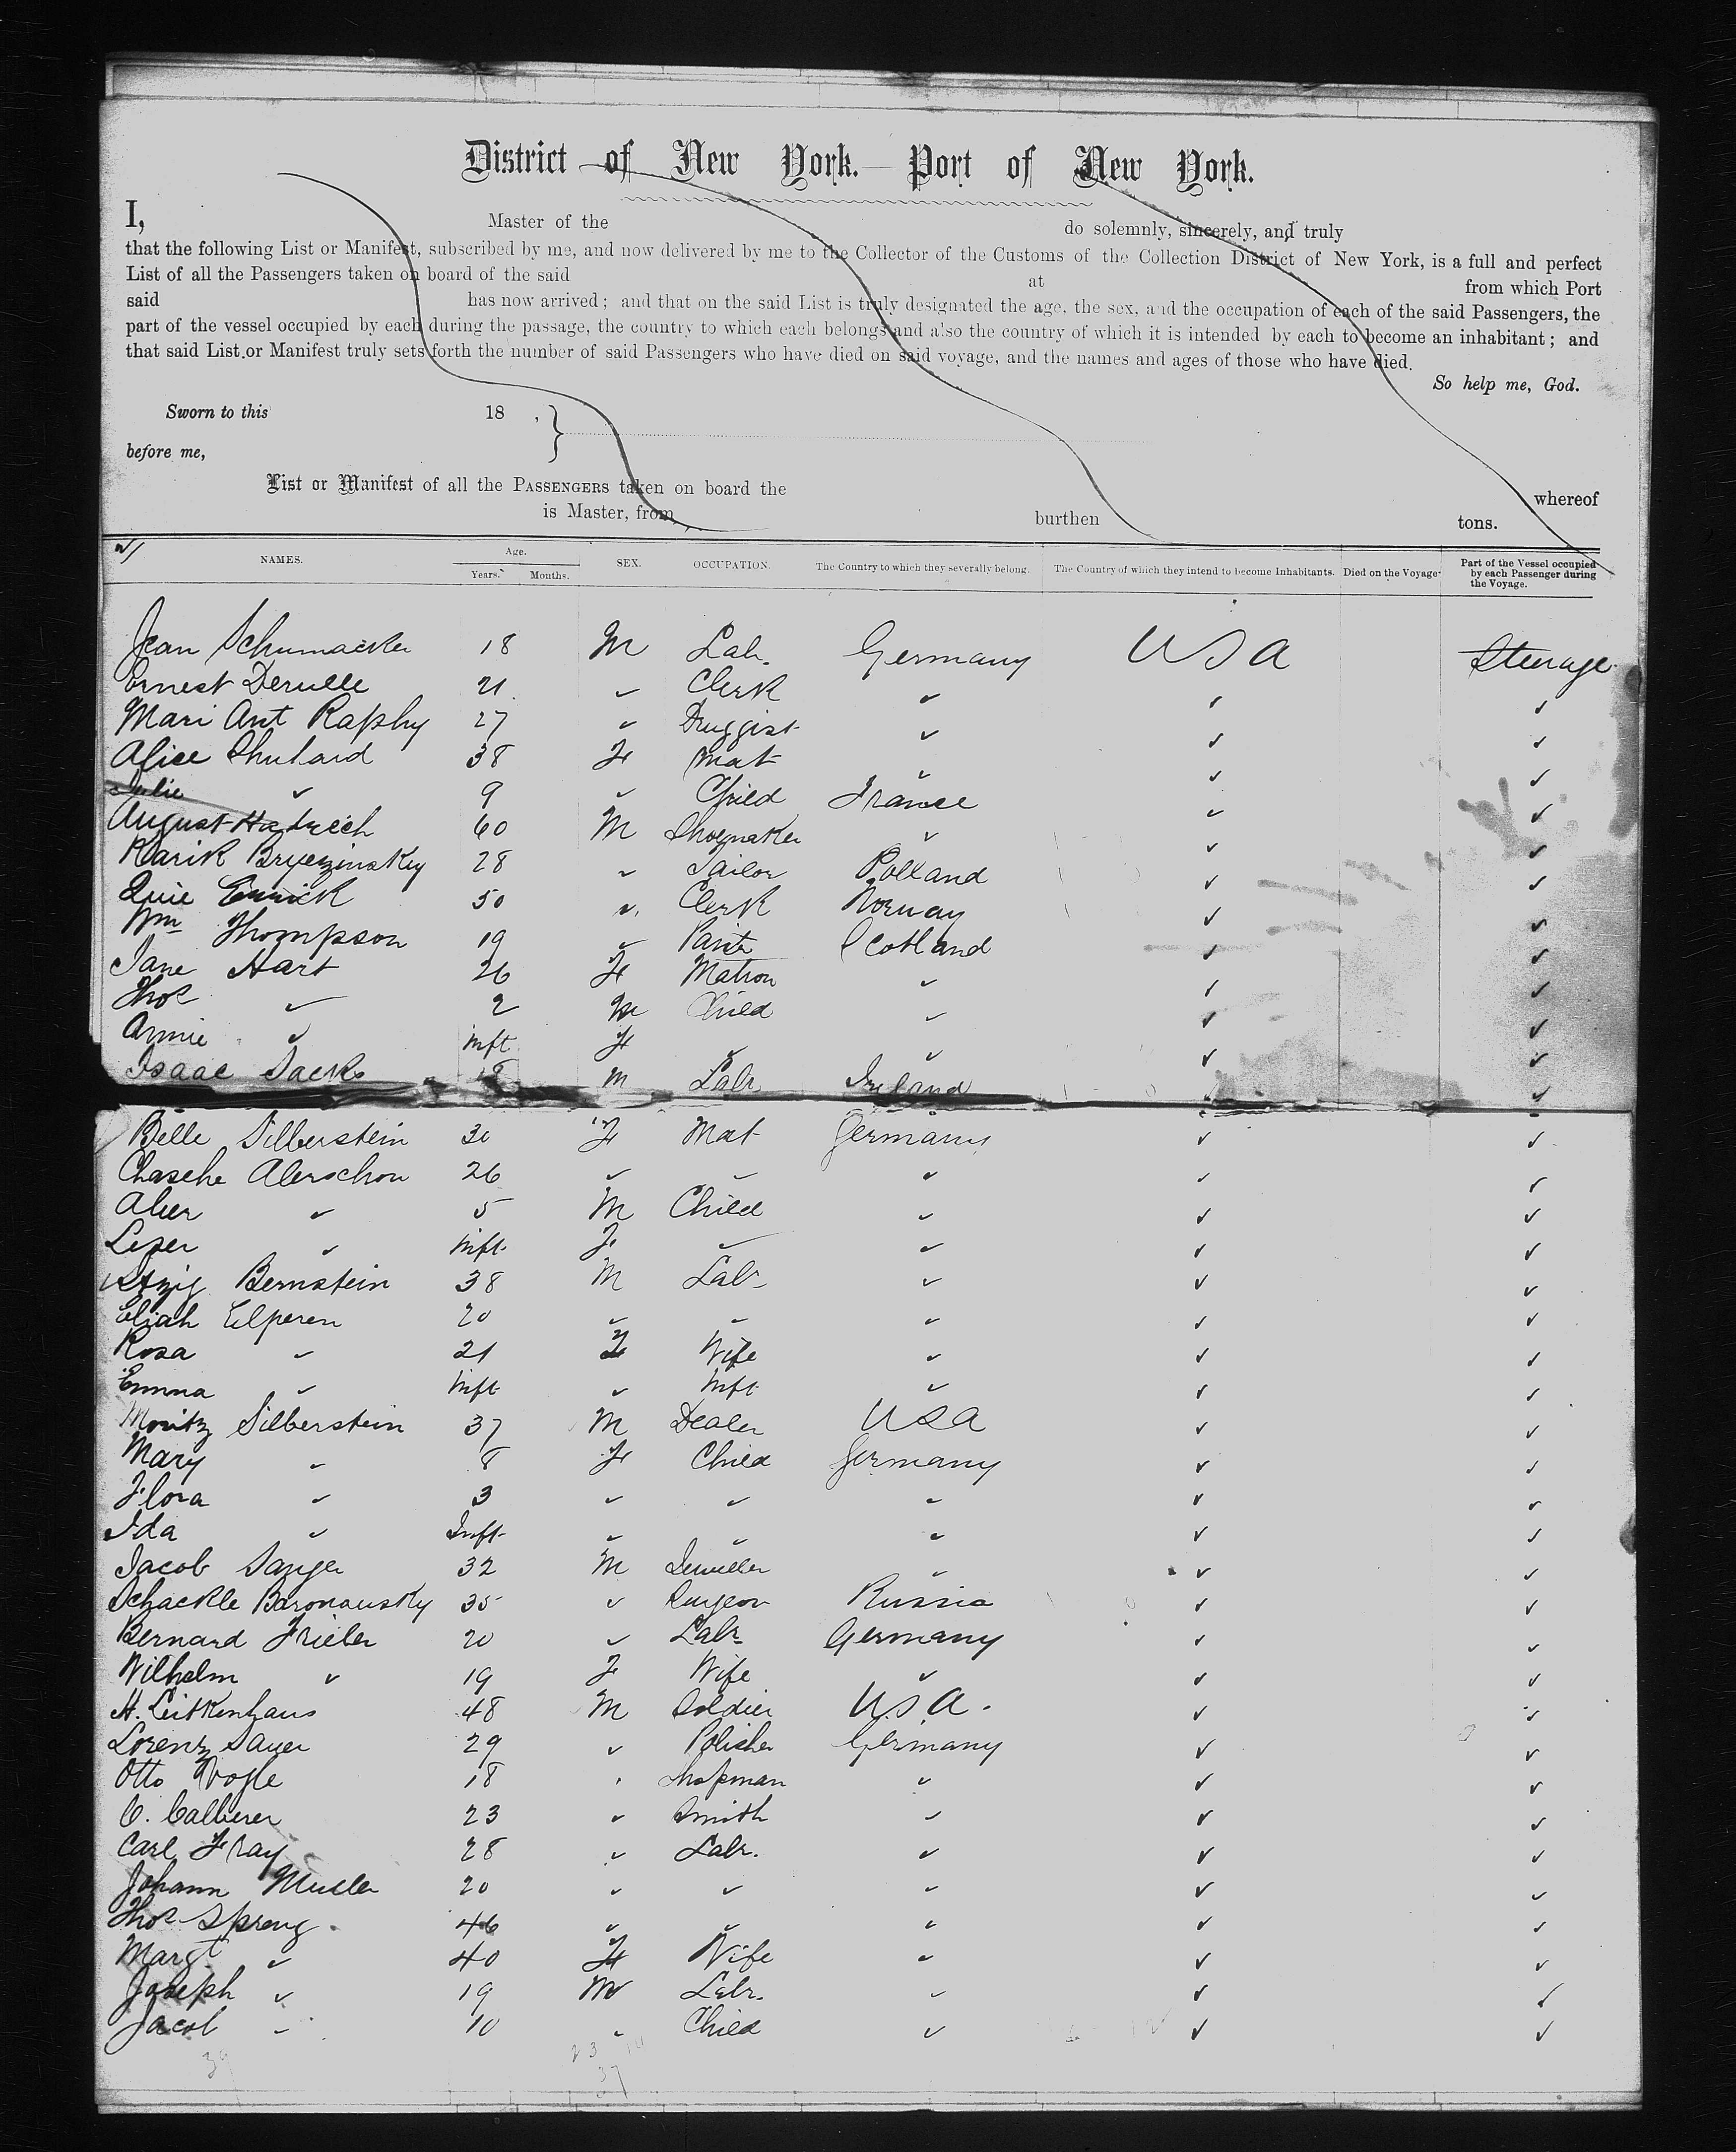 District of New York. Port of New York.
I, Master of the do solemnly, sincerely, and truly
that the following List or Manifest, subscribed by me, and now delivered by me to the Collector of the Customs of the Collection District of New York, is a full and perfect
List of all the Passengers taken on board of the said at from which Port
said has now arrived; and that on the said List is truly designated the age, the sex, and the occupation of each of the said Passengers, the
part of the vessel occupied by each during the passage, the country to which each belongs and also the country of which it is intended by each to become an inhabitant; and
that said List or Manifest truly sets forth the number of said Passengers who have died on said voyage, and the names and ages of those who have died.
So help me, God.
Sworn to this 18 , }
before me,
List or Manifest of all the PASSENGERS taken on board the whereof
is Master, from burthen tons.
NAMES. Age. Years. Months. SEX. OCCUPATION. The Country to which they severally belong. The Country of which they intend to become Inhabitants. Died on the Voyage. Part of the Vessel occupied by each Passenger during the Voyage.
Jean Schumacker 18 M Lab. Germany USA Steerage
Ernest Derulle 21 ✓ Clerk ✓ ✓ ✓
Mari Ant Raphy 27 ✓ Druggist ✓ ✓ ✓
Alice 38 F Mat ✓ ✓ ✓
Julie ✓ 9 ✓ Child France ✓ ✓
August 60 M Shoemaker ✓ ✓ ✓
28 ✓ Tailor Polland ✓ ✓
50 ✓ Clerk Norway ✓ ✓
Wm Thompson 19 ✓ Scotland ✓ ✓
Jane Hart 26 F Matron ✓ ✓ ✓
Thos ✓ 2 M Child ✓ ✓ ✓
Annie ✓ Inft F ✓ ✓ ✓ ✓
Isaac Sacks 18 M Labr Ireland ✓ ✓
Belle Silberstein 30 F Mat Germany ✓ ✓
Chasche Alerschon 26 ✓ ✓ ✓ ✓ ✓
✓ 5 M Child ✓ ✓ ✓
Leser ✓ Inft F ✓ ✓ ✓ ✓
Bernstein 38 M Labr ✓ ✓ ✓
Eliah Elperen 20 ✓ ✓ ✓ ✓ ✓
Rosa ✓ 21 F Wife ✓ ✓ ✓
Emma ✓ Inft ✓ Inft ✓ ✓ ✓
Moritz Silberstein 37 M Dealer USA ✓ ✓
Mary ✓ 8 F Child Germany ✓ ✓
Flora ✓ 3 ✓ ✓ ✓ ✓ ✓
Ida ✓ Inft ✓ ✓ ✓ ✓ ✓
Jacob Sanger 32 M Jeweller ✓ ✓ ✓
Schackle Baronausky 35 ✓ Surgeon Russia ✓ ✓
Bernard Frieler 20 ✓ Labr Germany ✓ ✓
Wilhelm ✓ 19 F Wife ✓ ✓ ✓
H. Leitkenhaus 48 M Soldier USA. ✓ ✓
Lorenz Sauer 29 ✓ Polisher Germany ✓ ✓
Otto 18 ✓ Shopman ✓ ✓ ✓
C. Calberer 23 ✓ Smith ✓ ✓ ✓
Carl Fray 28 ✓ Labr. ✓ ✓ ✓
Johann Muller 20 ✓ ✓ ✓ ✓ ✓
Thos Spreng 46 ✓ ✓ ✓ ✓ ✓
Margt ✓ 40 F Wife ✓ ✓ ✓
Joseph ✓ 19 M Labr. ✓ ✓ ✓
Jacob ✓ 10 ✓ Child ✓ ✓ ✓
39 23
37